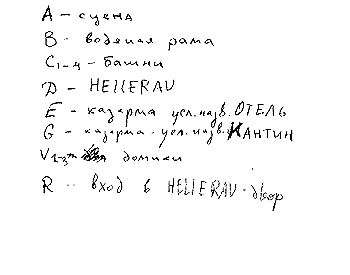 A – сцена
B - водяная рама
C₁₋₄ - башни
D – HELLERAU
E – казарма усл. назв. ОТЕЛЬ
G - казарма - усл. назв. КАНТИН
V₁₋₃ домики
R - вход в HELLERAU-двор